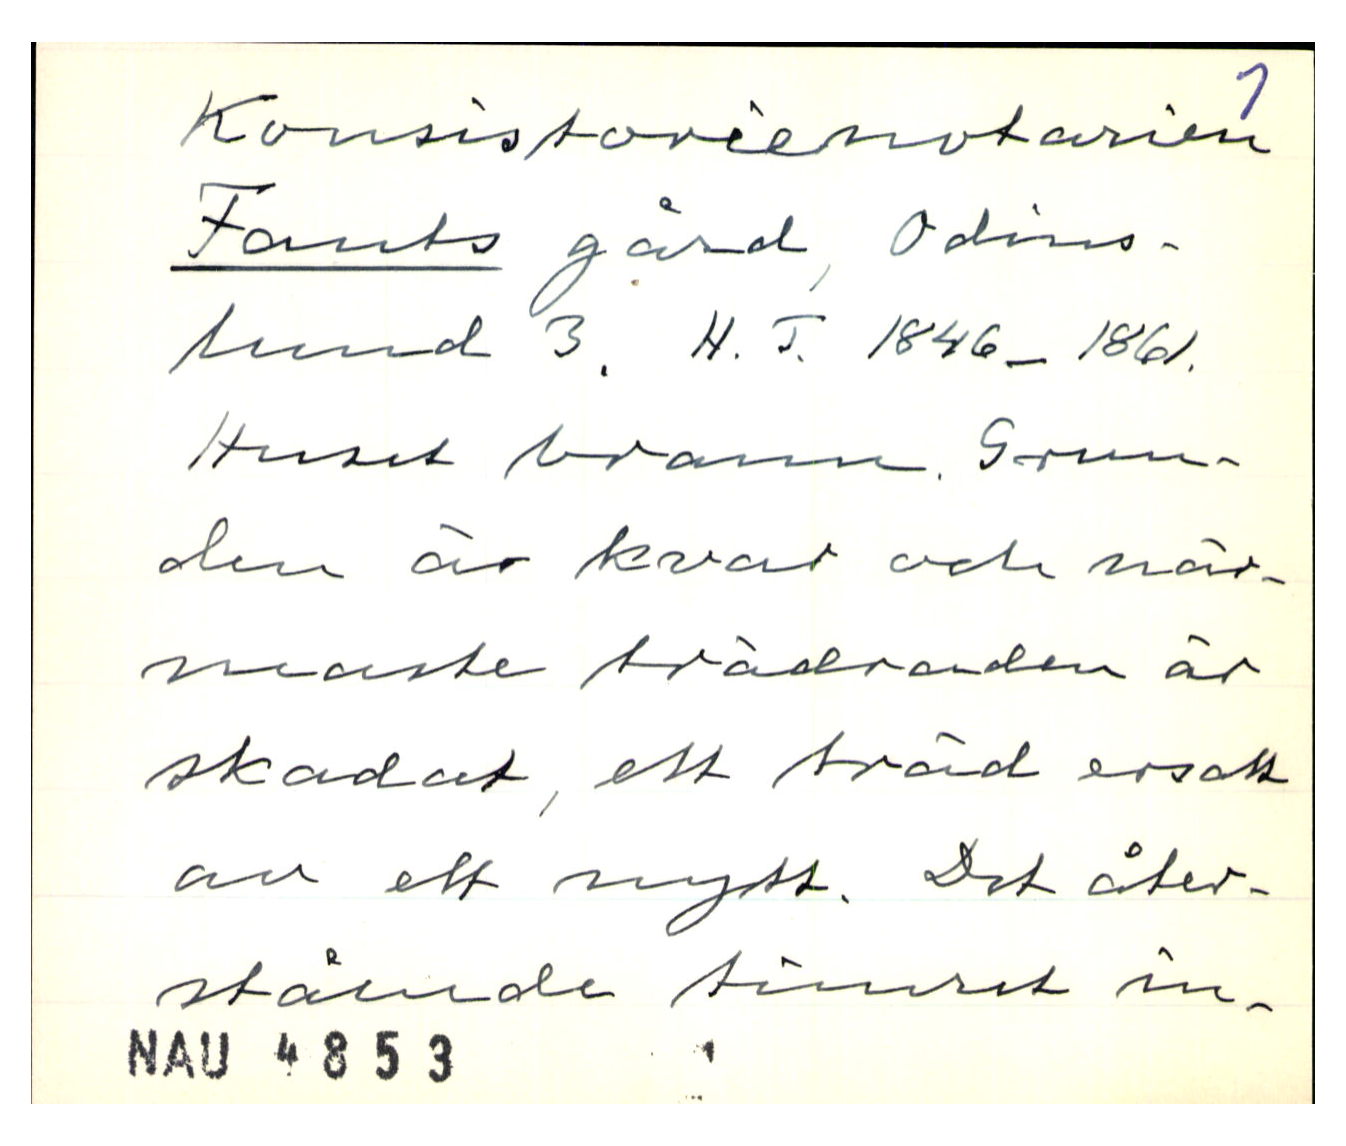 1
Konsistorienotarien
Fants gård, Odins-
lund 3. H. T. 1846-1861.
Huset brann. Grun-
den är kvar och när-
maste trädraden är
skadat, ett träd ersatt
av ett nytt. Det åter-
stående timret in-
NAU 4853